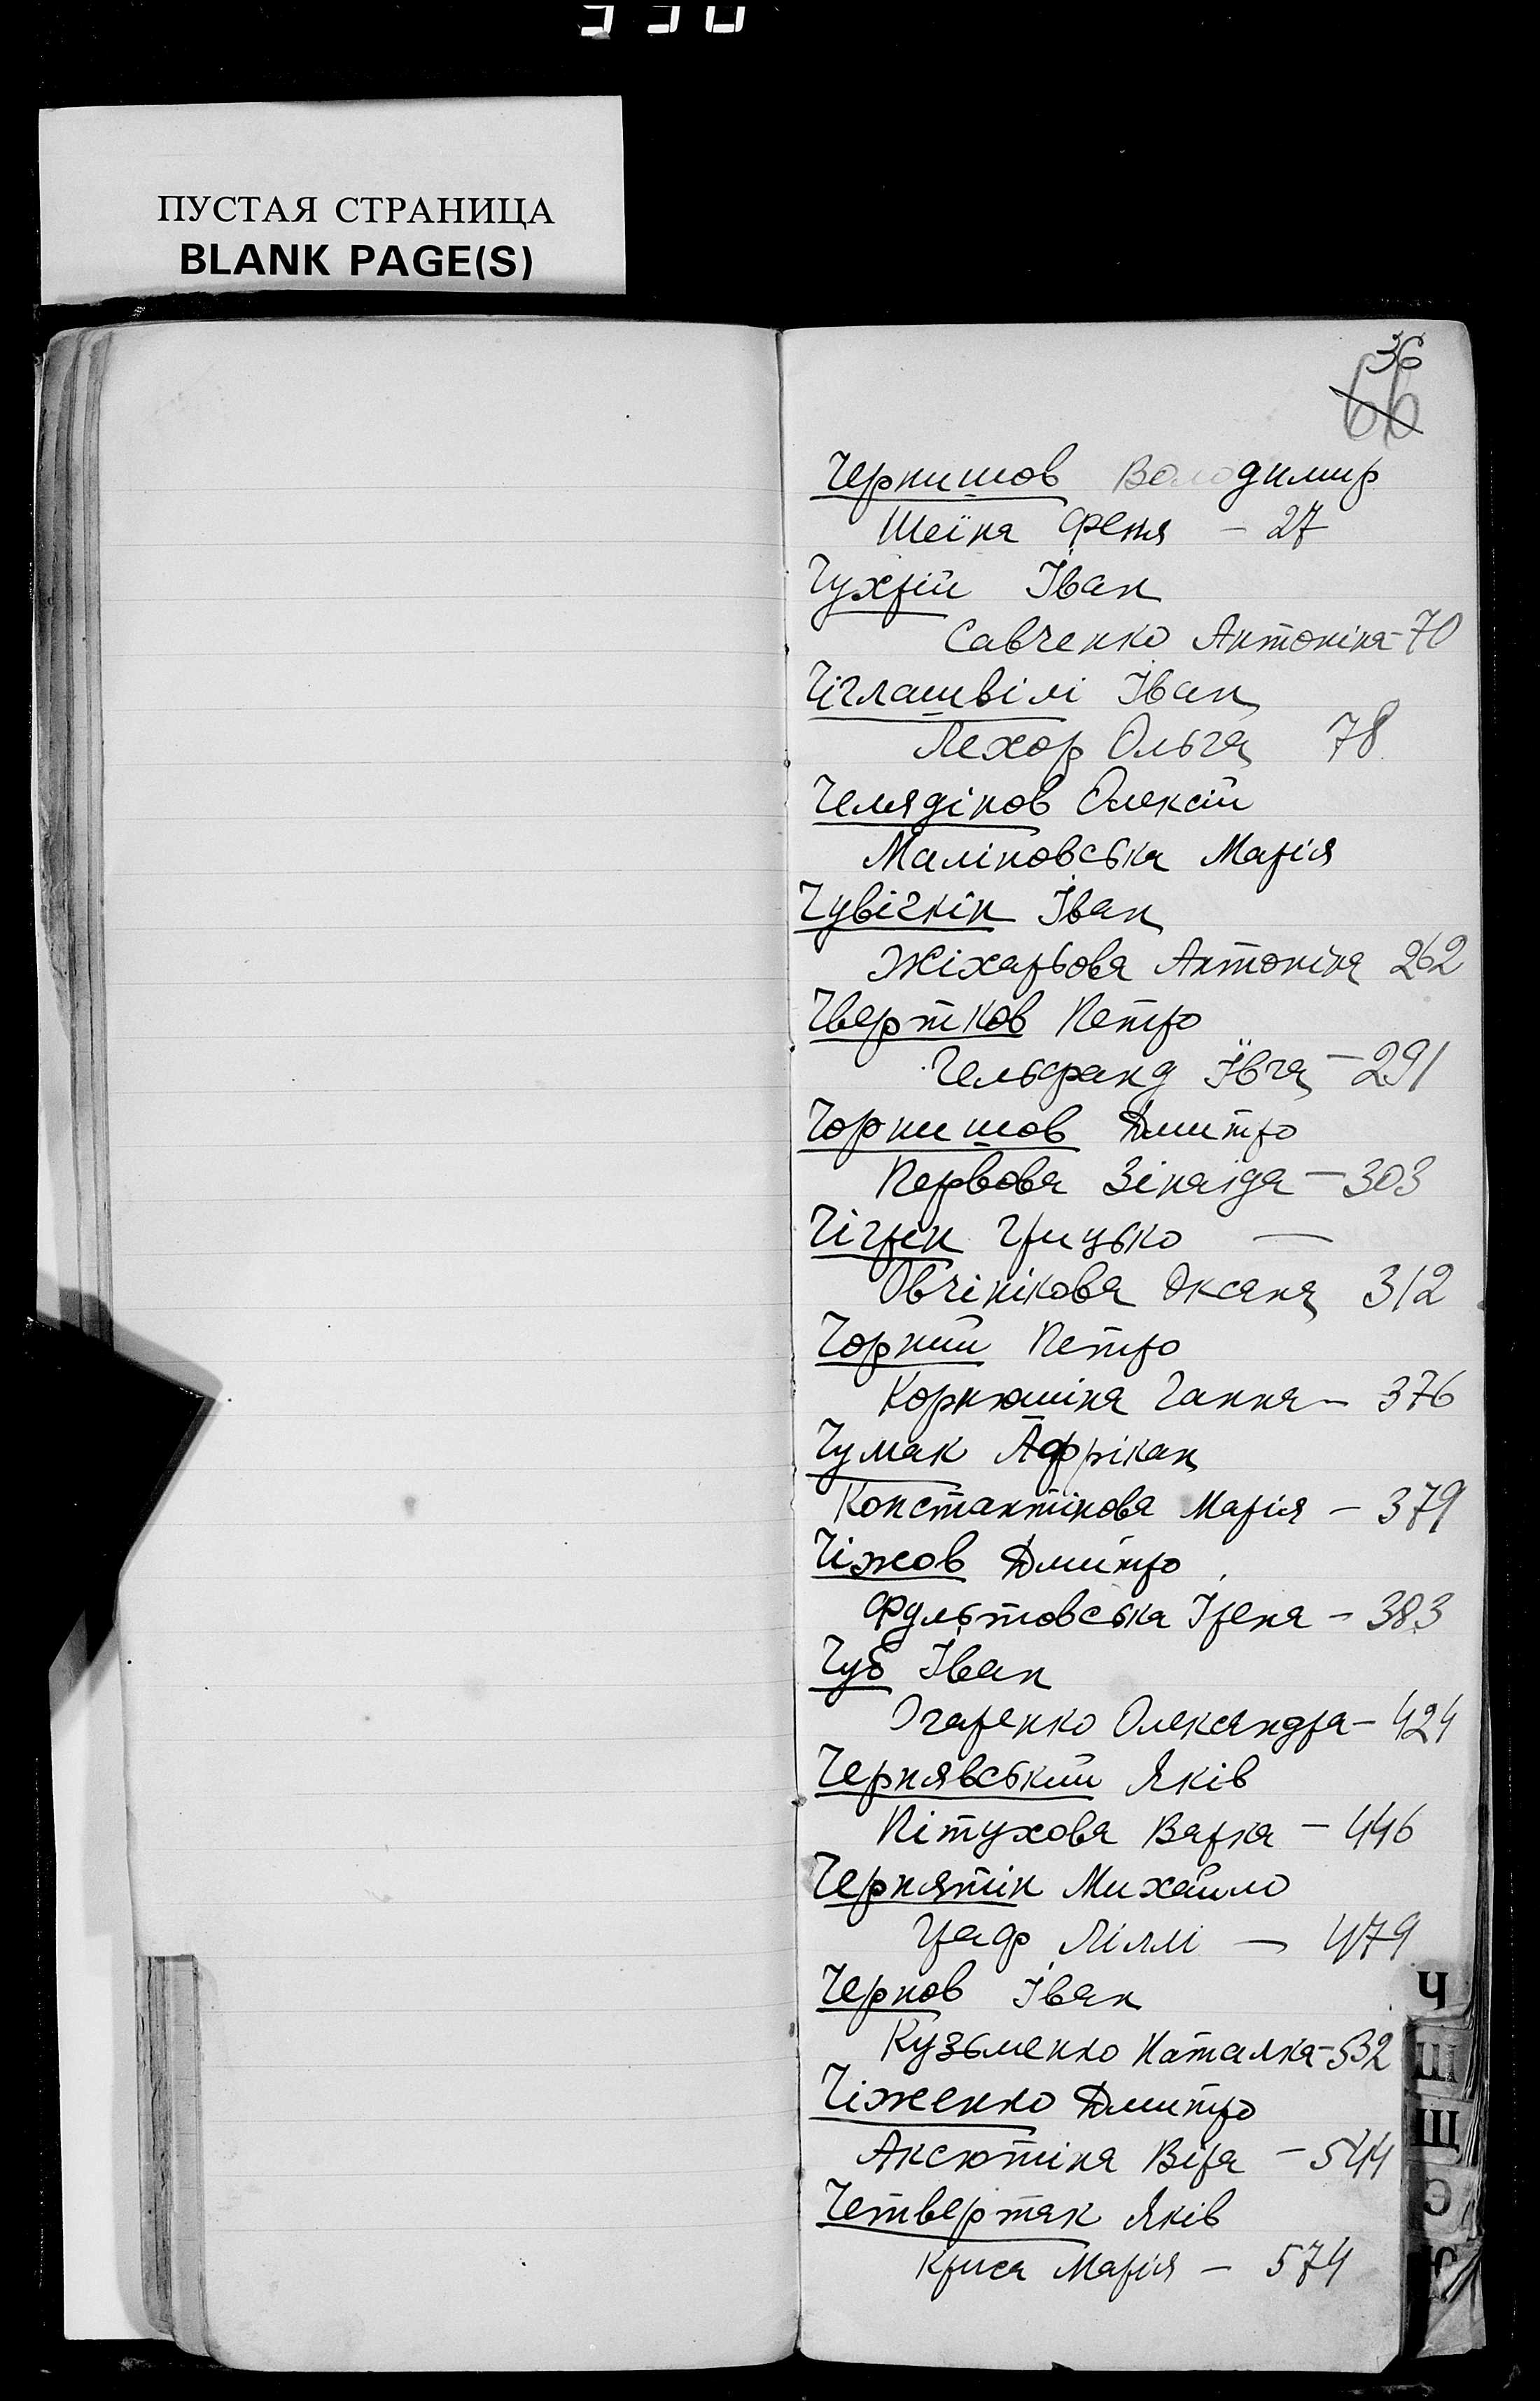 ПУСТАЯ СТРАНИЦА
BLANK PAGE(S)
36
66
Чернишов Володимир
Шеїна Феня - 27
Чухрій Іван
Савченко Антоніна - 70
Чіглашвілі Іван
Лехор Ольга 78
Челядінов Олексій
Маліновська Марія
Чувічкін Іван
Жіхарьова Антоніна 262
Чвертков Петро
Гельфанд Ївга - 291
Чорнишов Дмитро
Первова Зінаїда - 303
Чігрин Грицько -
Овчінікова Оксана 312
Чорний Петро
Корнюшіна Ганна - 376
Чумак Афрікан
Константінова Марія - 379
Чіжов Дмитро
Фультовська Ірена - 383
Чуб Іван
Огаренко Олександра - 424
Чернявський Яків
Пітухова Варка - 446
Чернятін Михайло
Цаф Ліллі - 479
Чернов Іван
Кузьменко Наталка - 532
Чіженко Дмитро
Аксютіна Віра - 544
Четвертак Яків
Криса Марія - 574
Ч
Ш
Щ
Э